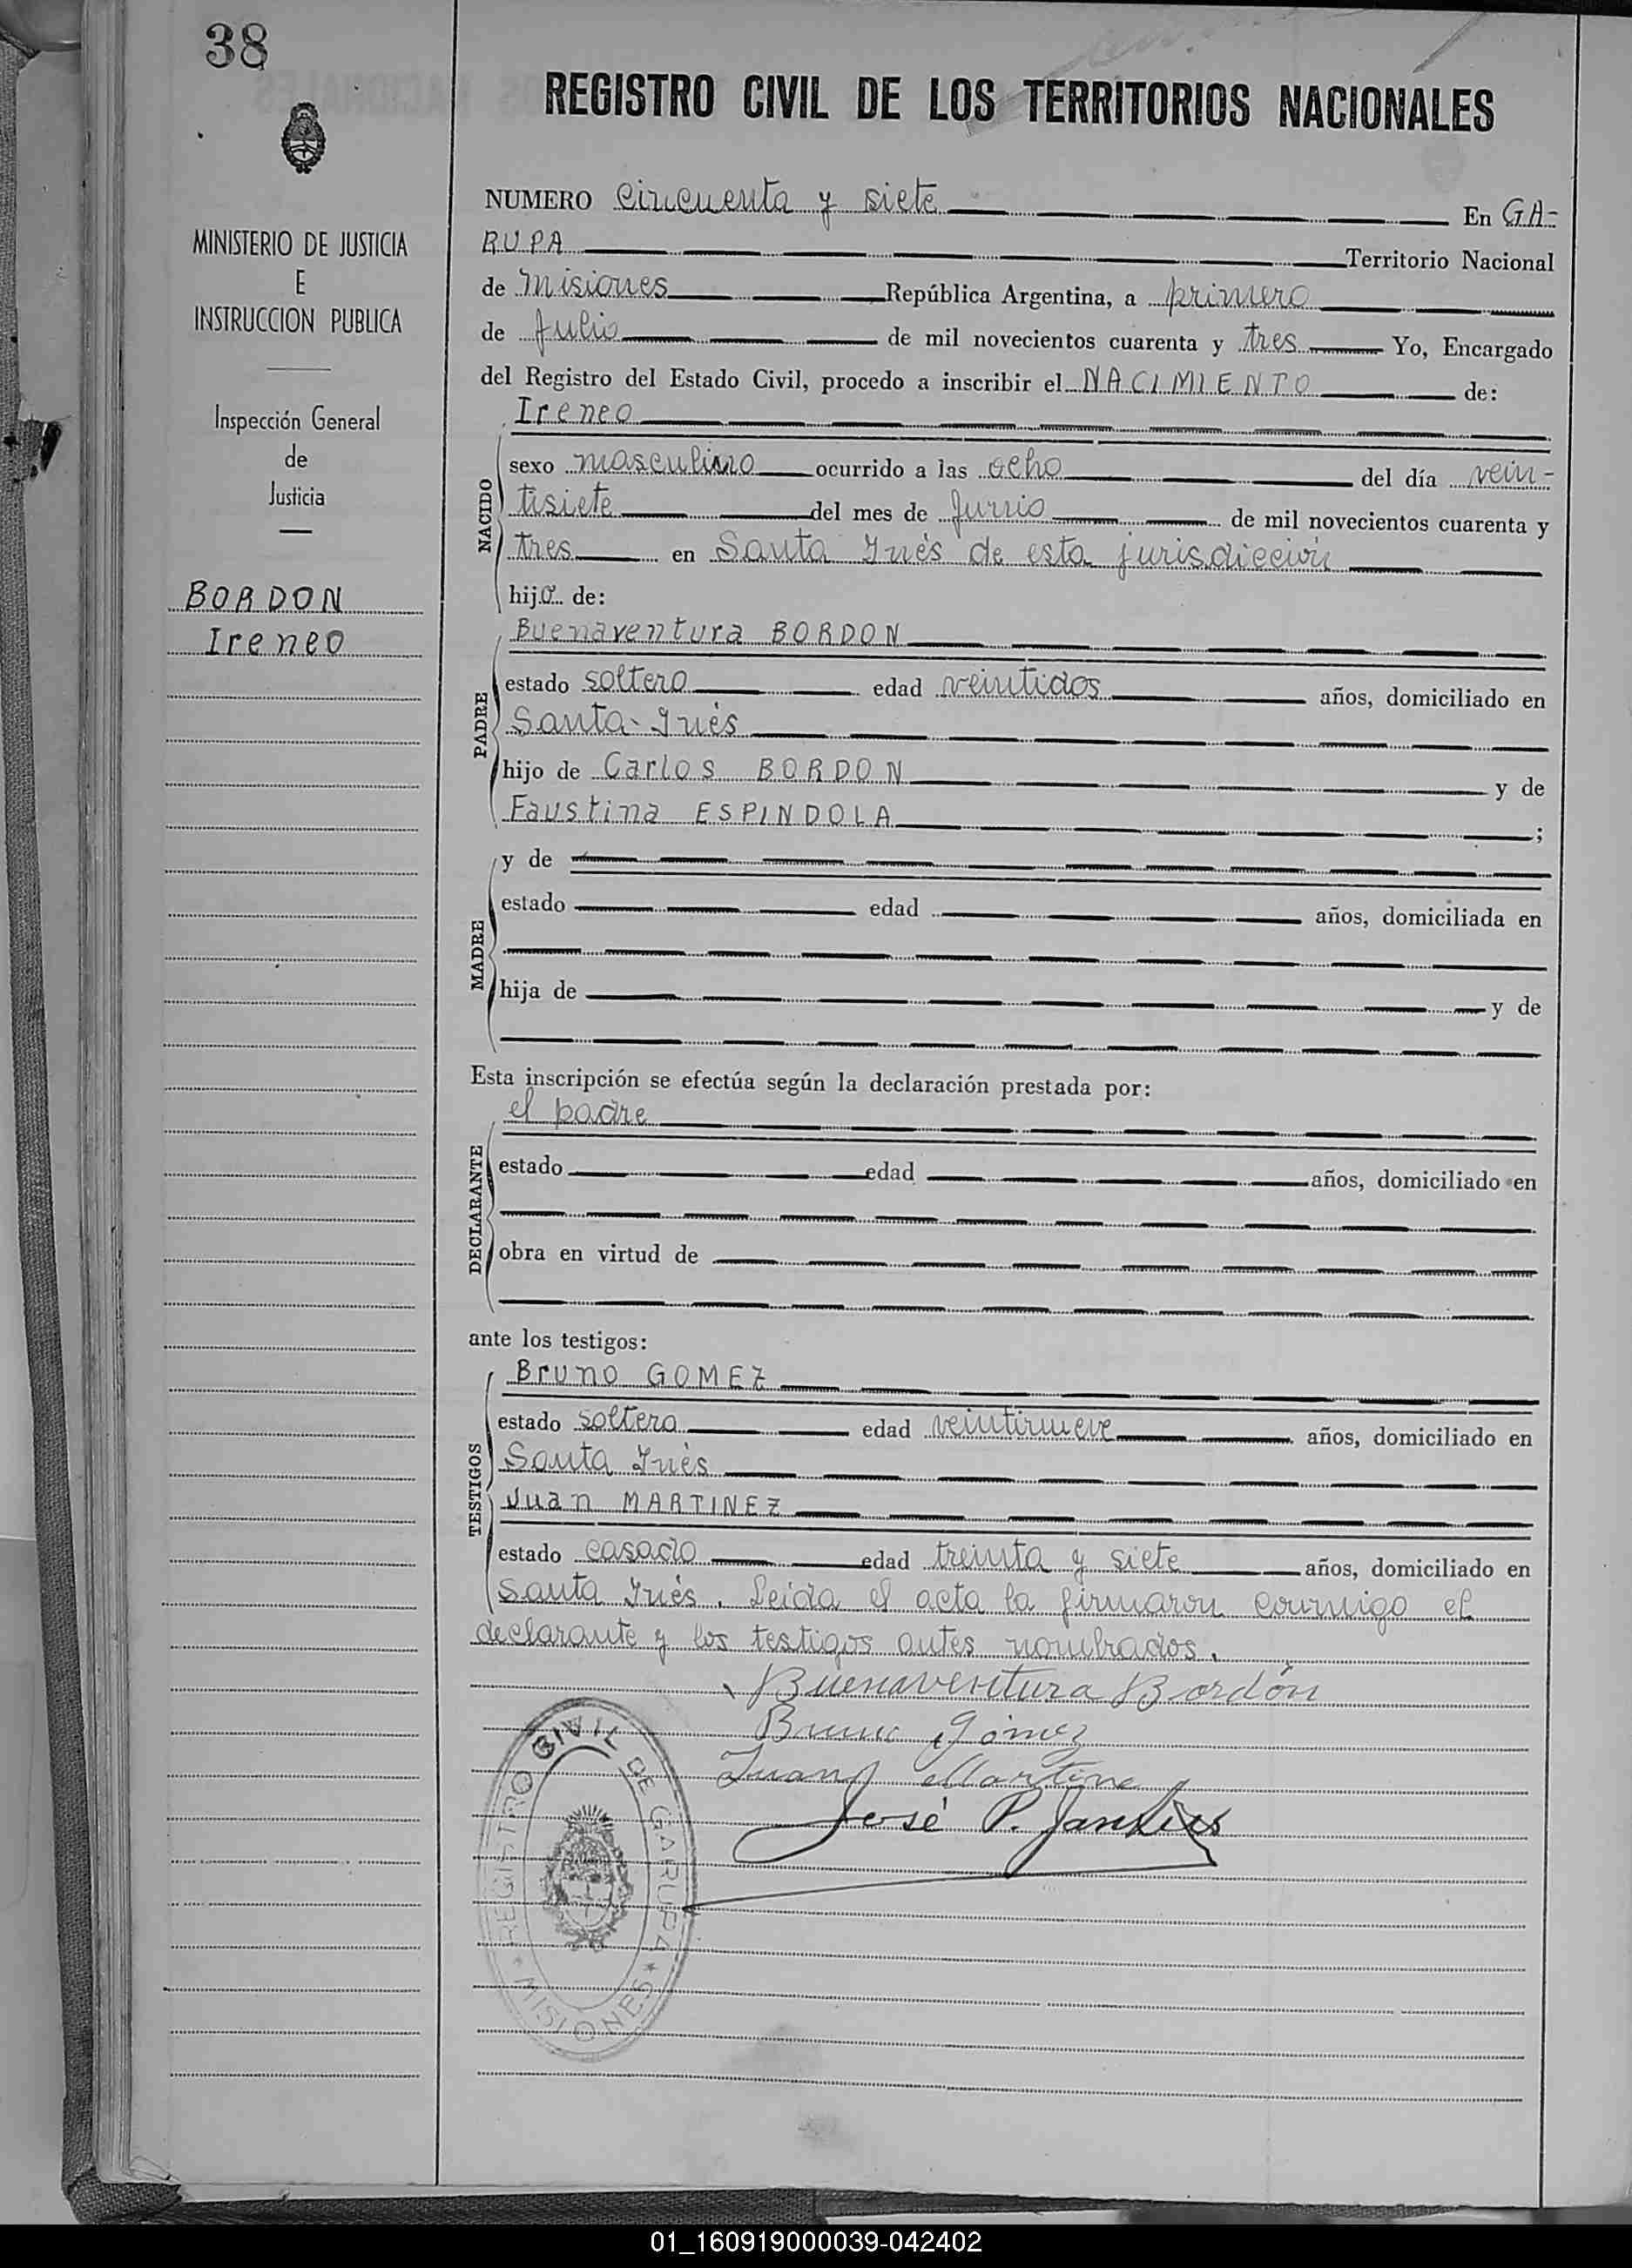 38
REGISTRO CIVIL DE LOS TERRITORIOS NACIONALES
MINISTERIO DE JUSTICIA
E
INSTRUCCION PUBLICA
Inspección General
de
Justicia
BORDON
Ireneo
NUMERO Cincuenta y siete En GA-
RUPA Territorio Nacional
de Misiones República Argentina, a primero
de Julio de mil novecientos cuarenta y tres Yo, Encargado
del Registro del Estado Civil, procedo a inscribir el NACIMIENTO de:
Ireneo
NACIDO
sexo masculino ocurrido a las ocho del día vein-
tisiete del mes de Junio de mil novecientos cuarenta y
tres en Santa Inés de esta jurisdicción
hijo de:
PADRE
Buenaventura BORDON
estado soltero edad veintidos años, domiciliado en
Santa-Inés
hijo de Carlos BORDON y de
Faustina ESPINDOLA ;
MADRE
y de
estado edad años, domiciliada en
hija de y de
Esta inscripción se efectúa según la declaración prestada por:
el padre
DECLARANTE
estado edad años, domiciliado en
obra en virtud de
ante los testigos:
TESTIGOS
Bruno GOMEZ
estado soltero edad veintinueve años, domiciliado en
Santa Inés
Juan MARTINEZ
estado casado edad treinta y siete años, domiciliado en
Santa Inés. Leida el acta la firmaron conmigo el
declarante y los testigos antes nombrados.
Buenaventura Bordón
Bruno Gómez
Juan Martine
José P.
REGISTRO CIVIL DE GARUPA
* MISIONES *
01_160919000039-042402